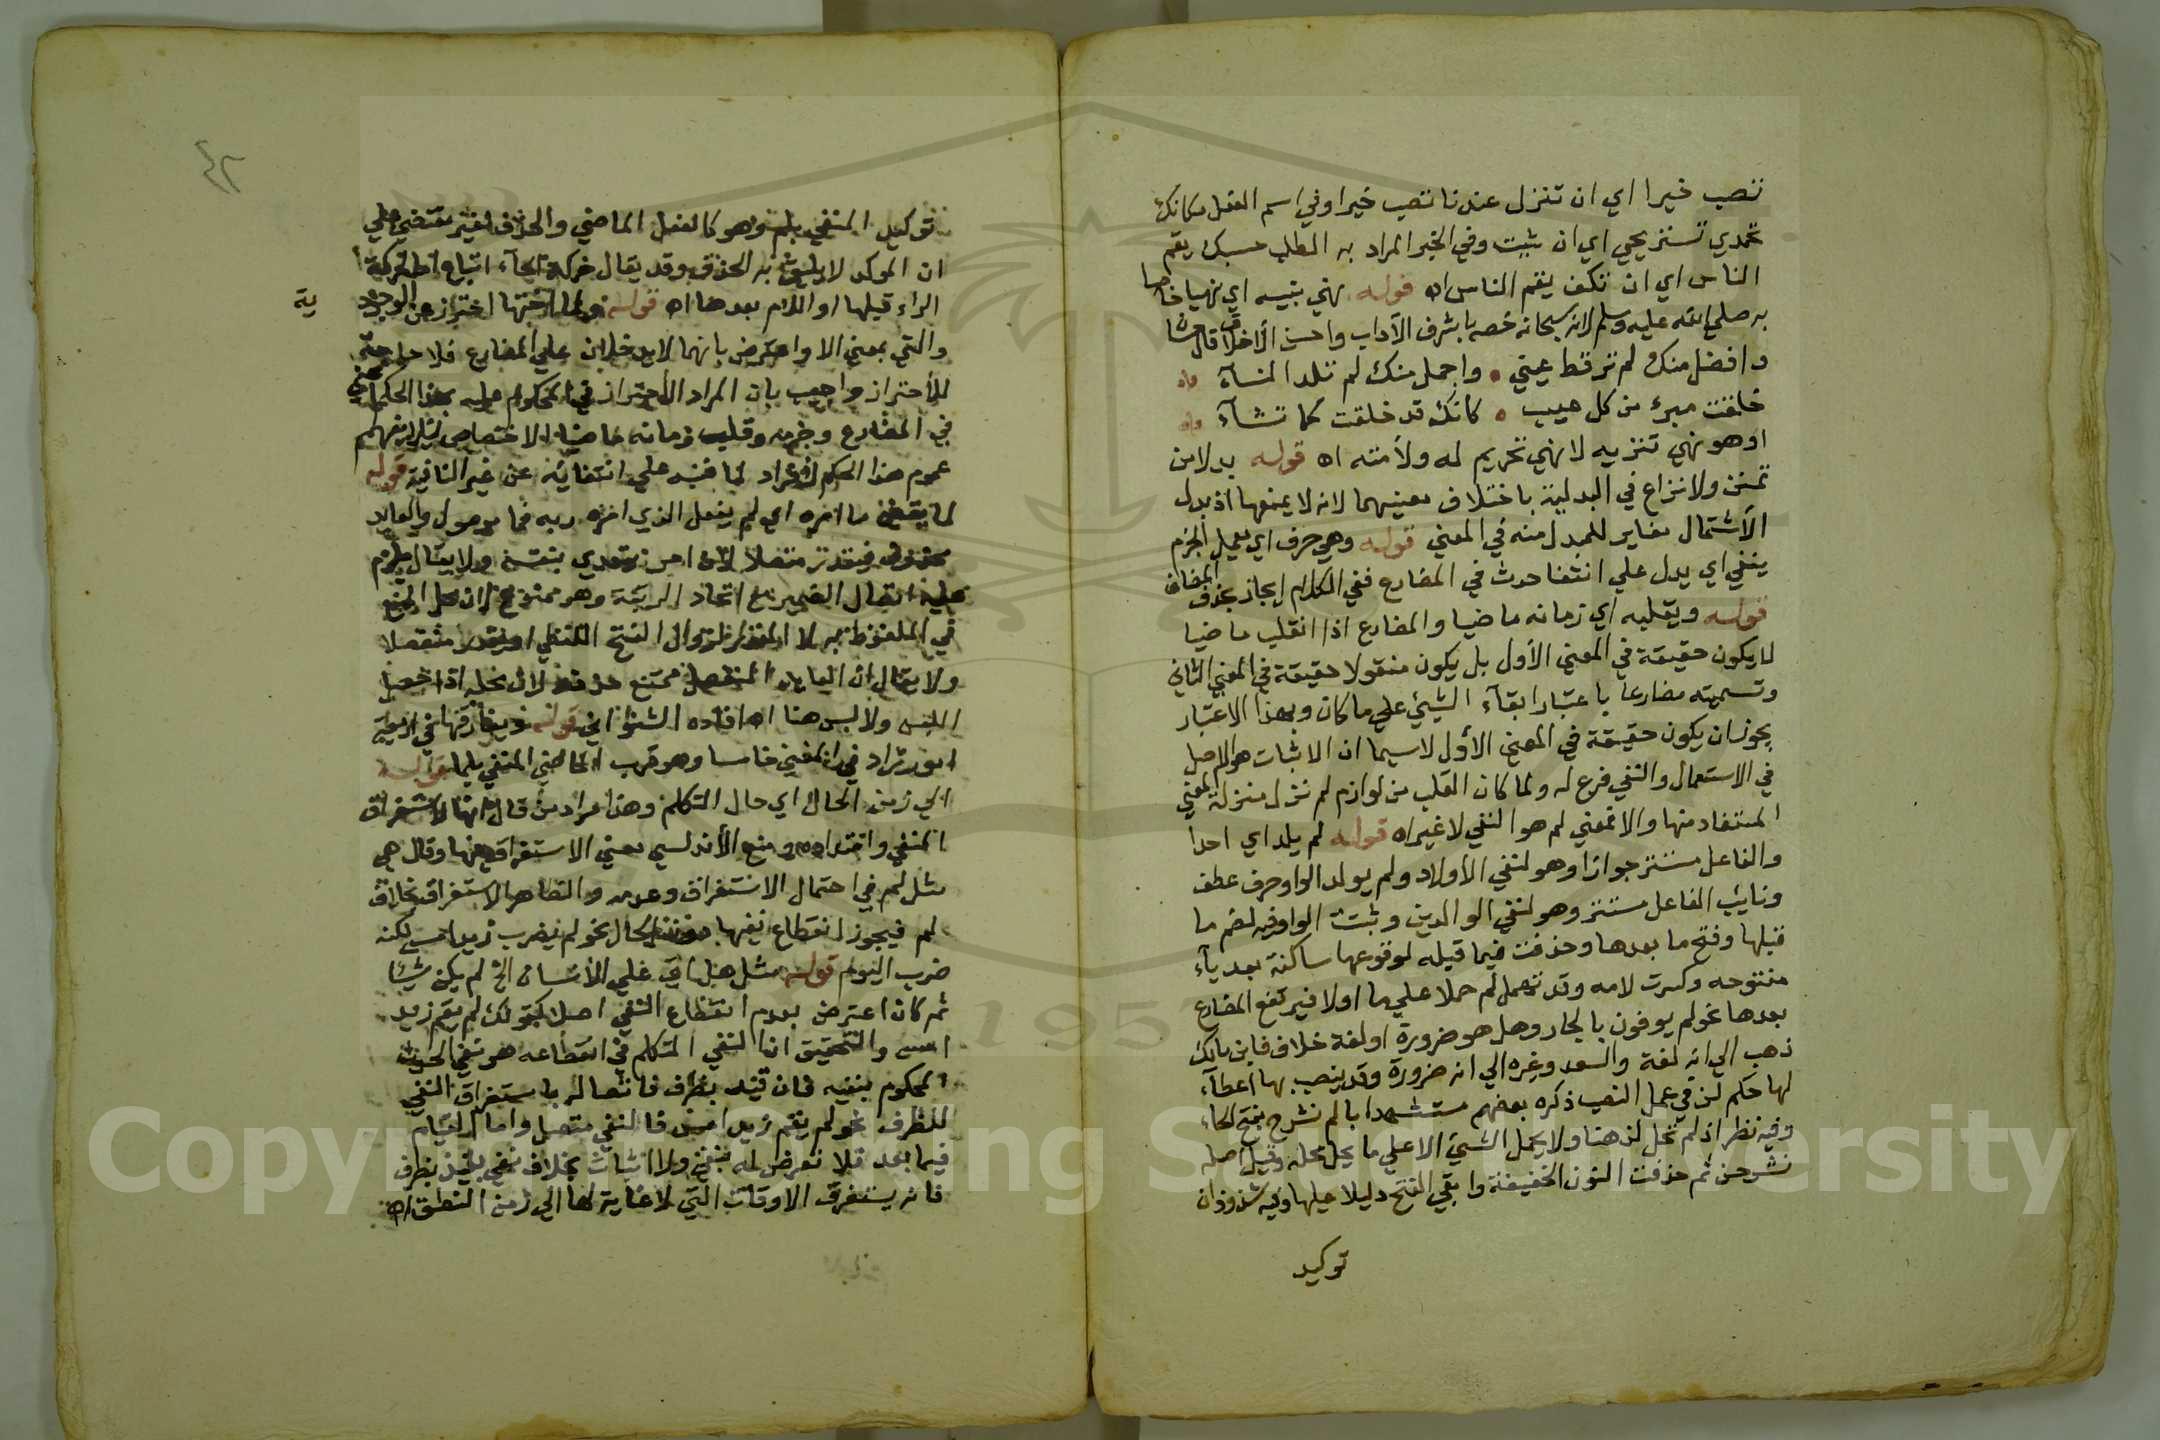 تصب خيرا اي ان تنزل عندنا تصب خيرا وفي اسم الفعل مكانك
تحمدي تستريحي اي ان تثبت وفي الخبر المراد به الطلب حسبك ينم
الناس اي ان تكف ينم الناس اه قوله نهي بنيسه اي نهيا خاصا
به صلي الله عليه وسلم لانه سبحانه خصه باشرف الآداب واحسن الأخلاق قال
وافضل منك لم تر قط عيني واجمل منك لم تلد النسآء
خلقت مبرء من كل عيب كانك قد خلقت كما تشآء
او هو نهي تنزيه لا نهي تحريم له ولأمته اه قوله بدلا من
تمنن ولا نزاع في البدلية باختلاف معنيهما لانه لا يمنعها اذ بدل
الأشتمال مغاير للمبدل منه في المعني قوله وهي حرف اي يعمل الجزم
ينفي اي يدل علي انتفا حدث في المضارع ففي الكلام ايجاز بحذف المضاف
قوله ويقلبه اي زمانه ماضيا والمضارع اذا انقلب ماضيا
لا يكون حقيقة في المعني الأول بل يكون منقولا حقيقة في المعني الثاني
وتسميته مضارعا باعتبار ابقآء الشيئ علي ما كان وبهذا الاعتبار
يجوز ان يكون حقيقة في المعني الأول لا سيما ان الاثبات هو الاصل
في الاستعمال والنفي فرع له ولما كان القلب من لوازم لم نزل منزلة المعني
المستفاد منها والا فمعني لم هو النفي لا غير اه قوله لم يلد اي احدا
والفاعل مستتر جوازا وهو لنفي الأولاد ولم يولد الواو حرف عطف
ونايب الفاعل مستتر وهو لنفي الوالدين وثبتت الواو فيه لضم ما
قبلها وفتح ما بعدها وحذفت فيما قبله لوقوعها ساكنة بعد يآء
مفتوحه وكسرت لامه وقد تهمل لم حملا علي ما اولا فيرتفع المضارع
بعدها نحو لم يوفون بالجار وهل هو ضرورة او لغة خلاف فابن مالك
ذهب الي انه لغة والسعد وغيره الي انه ضرورة وقد ينصب بها اعطآء
لها حكم لن في عمل النصب ذكره بعضهم مستشهدا بالم نشرح بفتح الحاء
وفيه نظر اذ لم تحل لن هنا ولا يحمل الشيئ الا علي ما يحل محله وقيل اصله
نشرحن ثم حذفت النون الخفيفة وابقي الفتح دليلا عليها وفيه شذوذان
توكيد
٤٢
توكيد المنفي بلم وهو كالفعل الماضي والحذف لغير مقتضي علي
ان الموكد لا يليق به الحذف وقد يقال حركة الحآء اتباع لحركة
الراء قبلها او اللام بعدها اه قوله ولما اختها احتراز عن الوجودية
والتي بمعني الا واعترض بانهما لا يدخلان علي المضارع فلا حاجة
للأحتراز واجيب بان المراد الأحتراز في المحكوم عليه بهذا الحكم
في المضارع وجزمه وقلب زمانه ماضيا الاختصاص ليلا يتوهم
عموم هذا الحكم لأفراد لما فنبه علي انتفائه عن غير النافية قوله
لما يقض ما امره اي لم يفعل الذي امره ربه فما موصول والعايد
محذوف فيقدر متصلا لان امر يتعدي بنفسه ولا يقال يلزم
عليه اتصال الضمير مع اتحاد الرتبة وهو ممنوع لان محل المنع
في الملفوظ به لا المقدر لزوال القبح اللفظي او يقدر منفصلا
ولا يقال ان العايد المنفصل يمتنع حذفه لان محله اذا حصل
اللبس ولا لبس هنا اه افاده الشنواني قوله ويفارقها في اربعة
امور زاد في المغني خامسا وهو قرب الماضي المنفي بلما قوله
الي زمن الحال اي حال التكلم وهذا مراد من قال انها لاستغراق
المنفي وامتداده ومنع الأندلسي معني الاستغراق فيها وقال هي
مثل لم في احتمال الاستغراق وعدمه والظاهر الاستغراق بخلاف
لم فيجوز انقطاع نفيها دون الحال نحو لم يضرب زيد امس لكنه
ضرب اليوم قوله مثل هل اتي علي الأنسان الخ لم يكن شيئا
ثم كان اعترض بعدم انقطاع النفي اصلا كقولك لم يقم زيد
امس والتحقيق ان النفي المتكلم في انقطاعه هو نفي الحدث
المحكوم بنفيه فان قيد بظرف فاتصاله باستغراق النفي
للظرف نحو لم يقم زيد امس فالنفي متصل واما القيام
فيما بعد فلا تعرض له بنفي ولا اثبات بخلاف نفي لم يقيد بظرف
فانه يستغرق الاوقات التي لا غاية لها الي زمن النطق اه
Copyright © King Saud University
1957